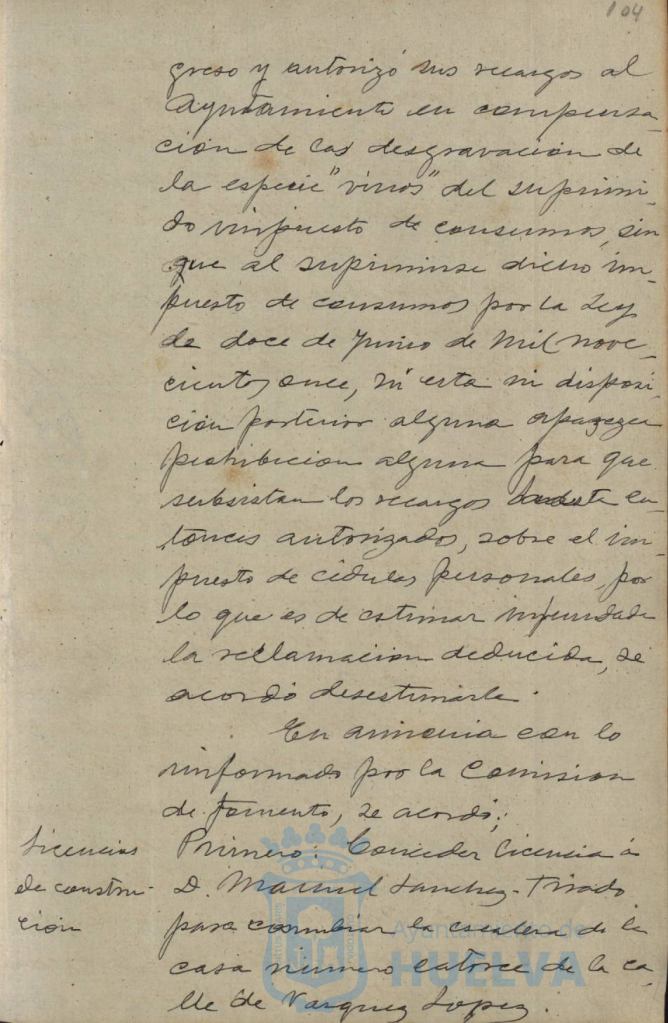 104
greso y autorizó sus recargos al
Ayuntamiento en compensa-
ción de las desgravación de
la especie "vinos" del suprimi-
do impuesto de consumos, sin
que al suprimirse dicho im-
puesto de consumos por la Ley
de doce de Junio de Mil nove-
cientos once, ni esta ni disposi-
ción posterior alguna aparezca
prohibicion alguna para que
subsistan los recargos hasta en-
tonces autorizados, sobre el im-
puesto de cédulas personales, por
lo que es de estimar infundada
la reclamacion deducida, se
acordó desestimarla.
En armonia con lo
informado por la Comision
de fomento, se acordó:
Licencias
de construc-
ción
Primero: Conceder licencia á
D. Manuel Sanchez-Tirado
para cambiar la escalera de la
casa número catorce de la ca-
lle de Vazquez Lopez.
Ayuntamiento de
HUELVA